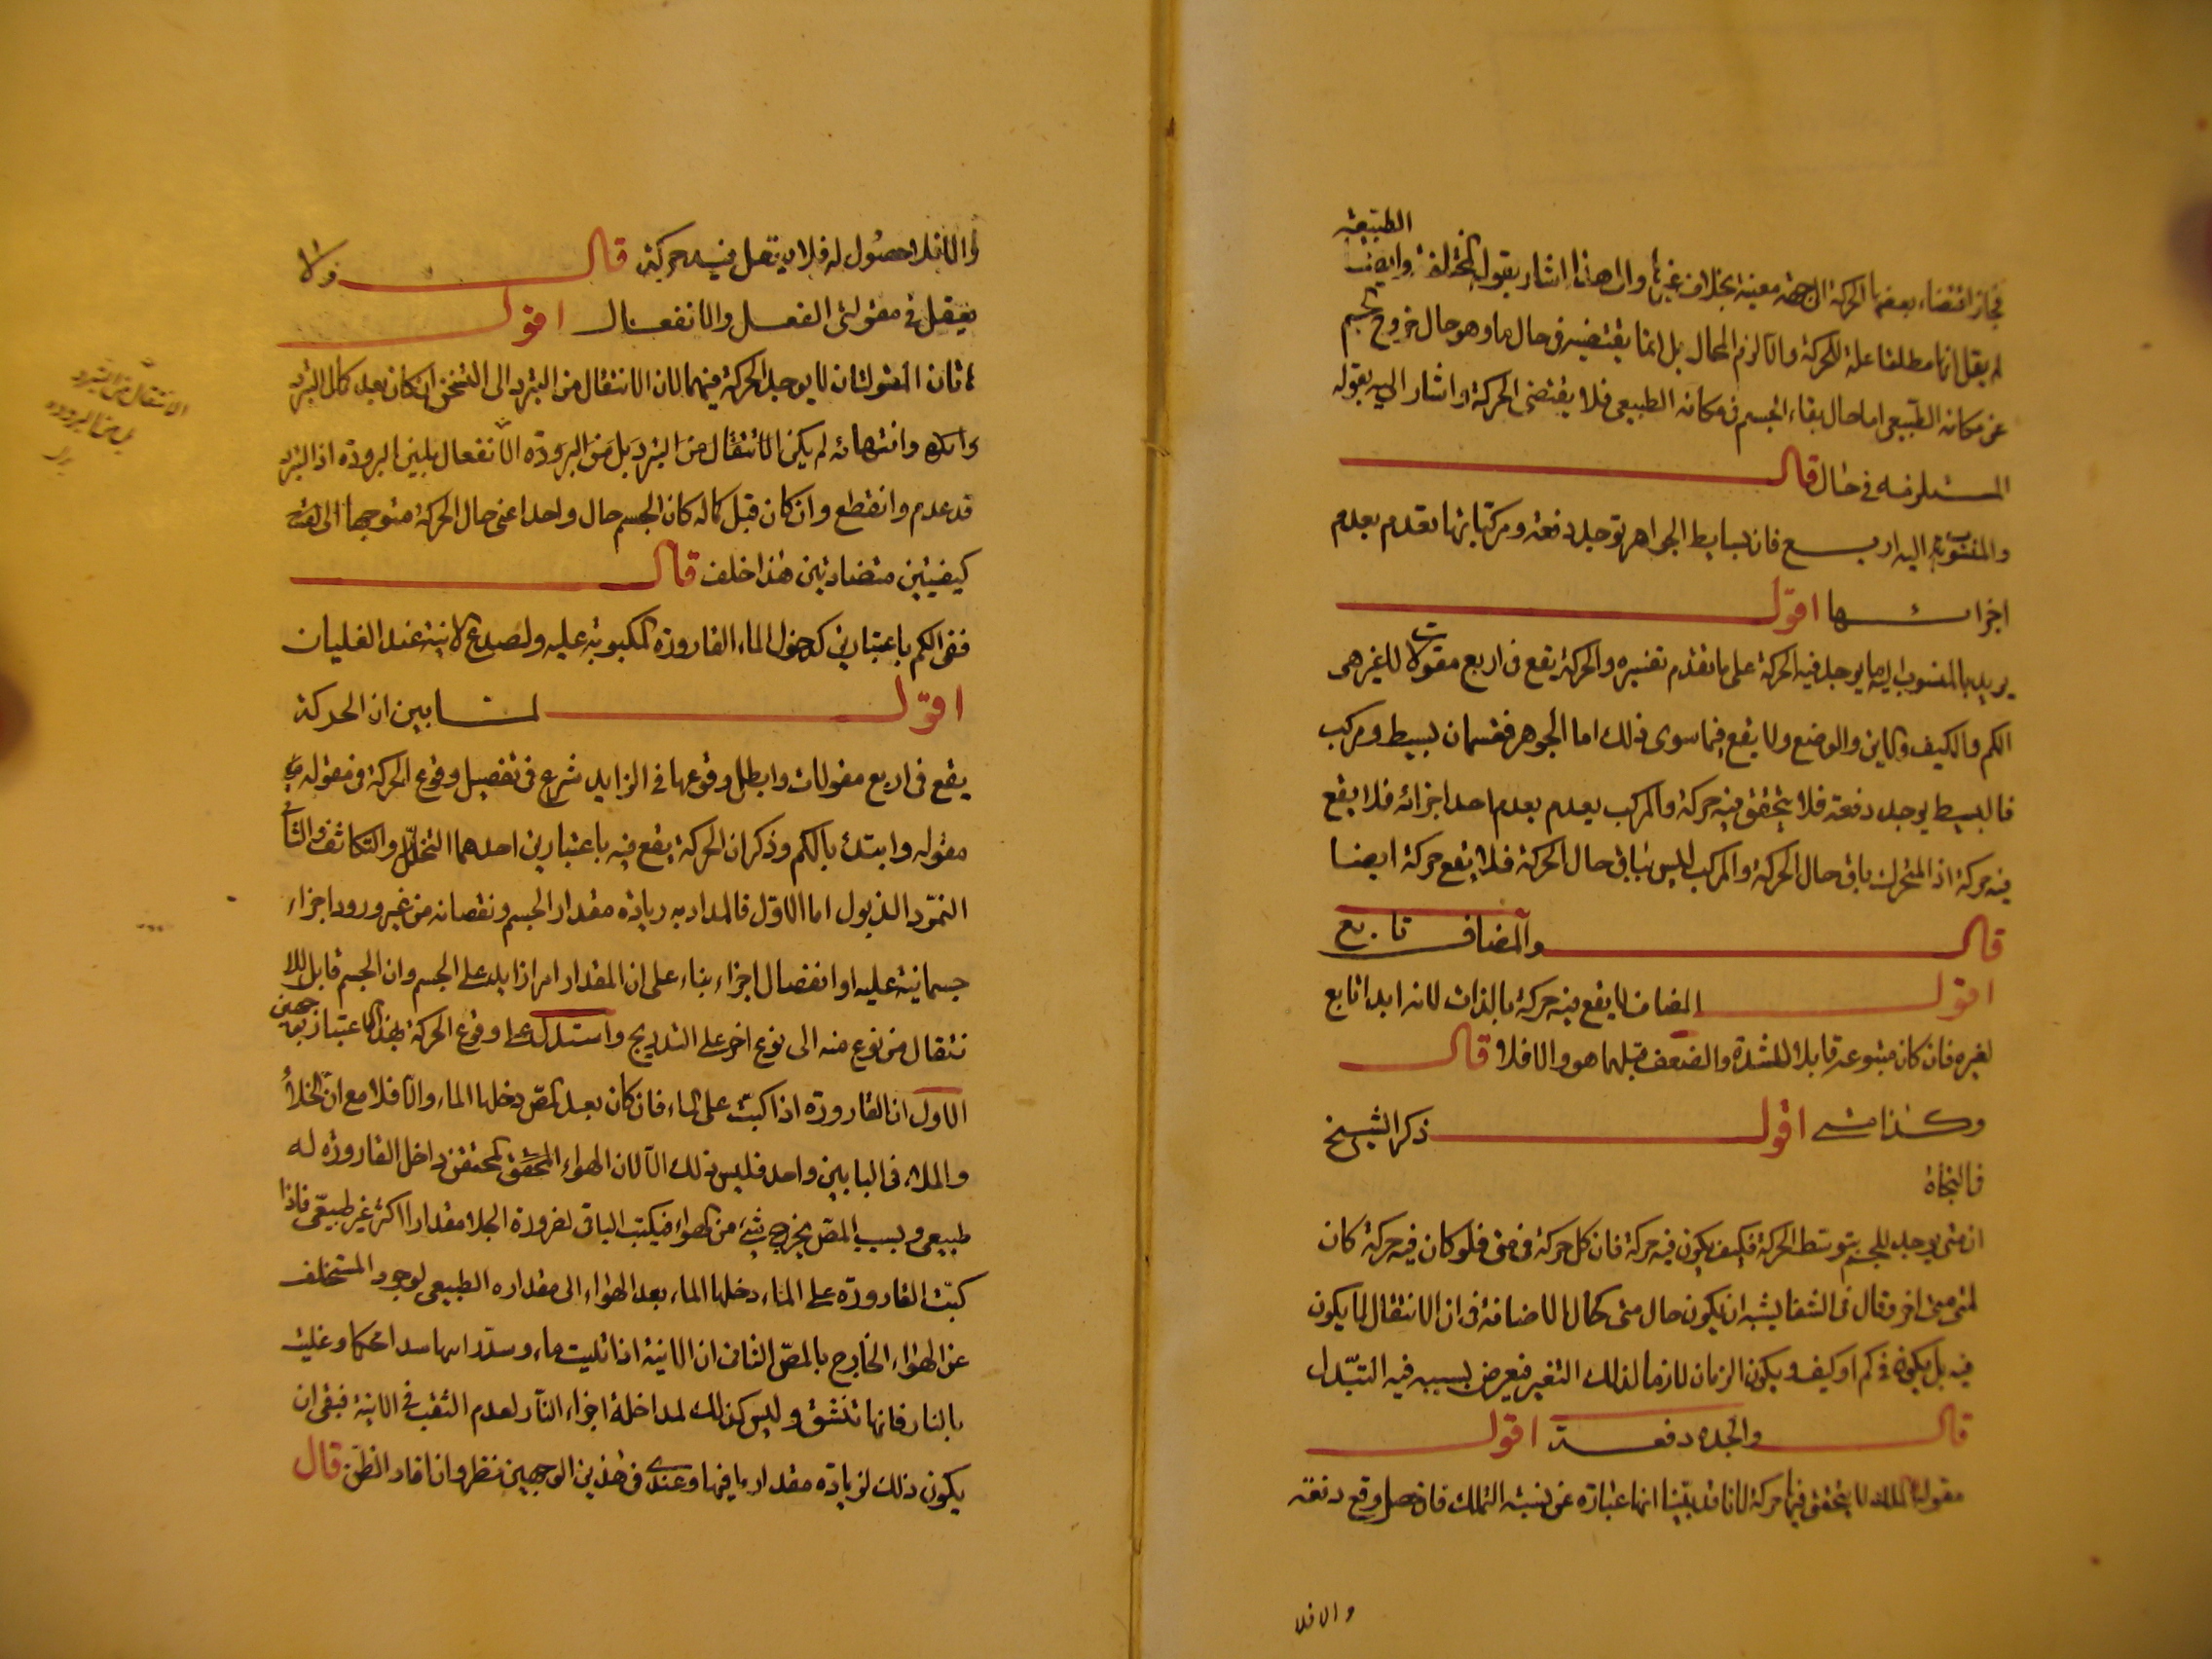 الطبيعة
فجاز اقتضاء بعضها الحركة الى جهة معينة بخلاف غيرها والى هذا اشار بقوله المختلفة وايضا
لم يقل انها مطلقا علة للحركة والا لزم المحال بل انما يقتضيه في حال ما وهو حال خروج الجسم
عن مكانه الطبيعى اما حال بقاء الجسم في مكانه الطبيعى فلا يقتضى الحركة واشار اليه بقوله
المستلزمه في حال قال
والمنسوب اليه اربع فان بسايط الجواهر توجد دفعة ومركباتها تعدم بعدم
اجزائها اقول
يريد بالمنسوب اليه ما يوجد فيه الحركة على ما تقدم تفسيره والحركة يقع في اربع مقولات للغير هى
الكم والكيف والاين والوضع ولا يقع فيما سوى ذلك اما الجوهر فقسمان بسيط ومركب
فالبسيط يوجد دفعة فلا يتحقق فيه حركة والمركب يعدم بعدم احد اجزائه فلا يقع
فيه حركة اذ المتحرك باق حال الحركة والمركب ليس بباق حال الحركة فلا يقع حركة ايضا
قال والمضاف تابع
اقول المضاف لا يقع فيه حركة بالذات لانه ابدا تابع
لغيره فان كان متبوعه قابلا للشدة والضعف قبلهما هو والا فلا قال
وكذا متى اقول ذكر الشيخ
في النجاة
ان متى يوجد للجسم بتوسط الحركة فكيف يكون فيه حركة فان كل حركة في متى فلو كان فيه حركة كان
لمتى متى اخر وقال في الشفا يشبه ان يكون حال متى كحال الاضافة في ان الانتقال لا يكون
فيه بل يكون في كم او كيف ويكون الزمان لازما لذلك التغير فيعرض بسببه فيه التبدل
قال والجدة دفعة اقول
مقولة الملك لا يتحقق فيها حركة لانا قد بينا انها عبارة عن نسبة التملك فان حصل وقع دفعة
والا فلا
والا فلا حصول له فلا يعقل فيه حركة قال ولا
يعقل في مقولتى الفعل والانفعال اقول
هاتان المقولتان لا يوجد الحركة فيهما لان الانتقال من التبرد الى التسخن ان كان بعد كمال التبرد
وانتهائه لم يكن الانتقال من التبرد بل من البرودة الانفعال بلين البرودة اذ التبرد
قد عدم وانقطع وان كان قبل كماله كان الجسم حال واحد اعنى حال الحركة متوجها الى
كيفيتين متضادتين هذا خلف قال
ففى الكم باعتبارين كدخول الماء القارورة المكبوبة عليه ولصدع الانية عند الغليان
اقول لما بين ان الحركة
يقع في اربع مقولات وابطل وقوعها في الزايد شرع في تفصيل وقوع الحركة في مقوله
مقوله وابتدء بالكم وذكر ان الحركة يقع فيه باعتبارين احدهما التخلخل والتكاثف والثانى
النمو والذبول اما الاول فالمراد به زيادة مقدار الجسم ونقصانه من غير ورود اجزاء
جسمانية عليه او انفصال اجزاء بناء على ان المقدار امر زايد على الجسم وان الجسم قابل للا
نتقال من نوع منه الى نوع اخر على التدريج واستدل على وقوع الحركة بهذا الاعتبار بوجهين
الاول ان القارورة اذا كبت على الماء فان كان بعد المص دخلها الماء والا فلا مع ان الخلأ
والملاء في البابين واحد فليس ذلك الا لان الهواء المحتقن داخل القارورة له
طبيعى وبسبب المص يخرج شئ من الهواء فيكتب الباقى لضرورة الخلا مقدارا اكثر غير طبيعى فاذا
كبت القارورة على الماء دخلها الماء بعد الهواء الى مقداره الطبيعى لوجود المستخلف
عن الهواء الخارج بالمص الثانى ان الانية اذا ملئت ماء وسد راسها سدا محكما وغليت
بالنار فانها تنشق وليس كذلك لمداخلة اجزاء النار لعدم الثقب في الانية فبقى ان
يكون ذلك لزيادة مقدار ما فيها وعندى في هذين الوجهين نظر وان افاد الظن قال
الانتقال من التبرد
بل من البرودة